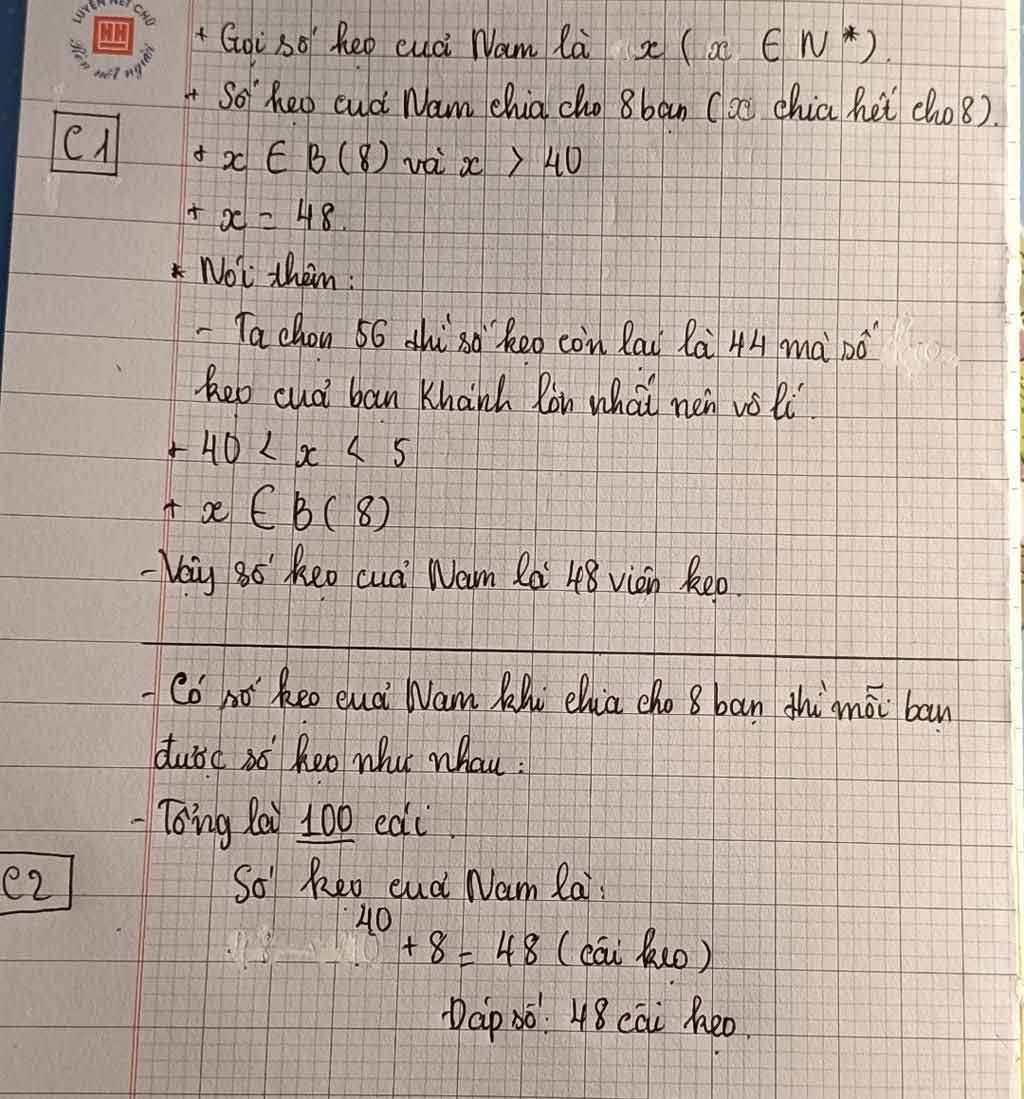 LUYỆN NÉT CHỮ
Rèn nét người
+ Gọi số kẹo của Nam là x ( x ∈ N *).
+ Số kẹo của Nam chia cho 8 bạn (x chia hết cho 8).
C1
+ x ∈ B ( 8 ) và x > 40
+ x = 48.
* Nói thêm :
- Ta chọn 56 thì số kẹo còn lại là 44 mà số
kẹo của bạn Khánh lớn nhất nên vô lí.
+ 40 < x < 5
+ x ∈ B ( 8 )
- Vậy số kẹo của Nam là 48 viên kẹo.
- Có số kẹo của Nam khi chia cho 8 bạn thì mỗi bạn
được số kẹo như nhau :
- Tổng là 100 cái.
C2
Số kẹo của Nam là :
40 + 8 = 48 ( cái kẹo )
Đáp số : 48 cái kẹo.